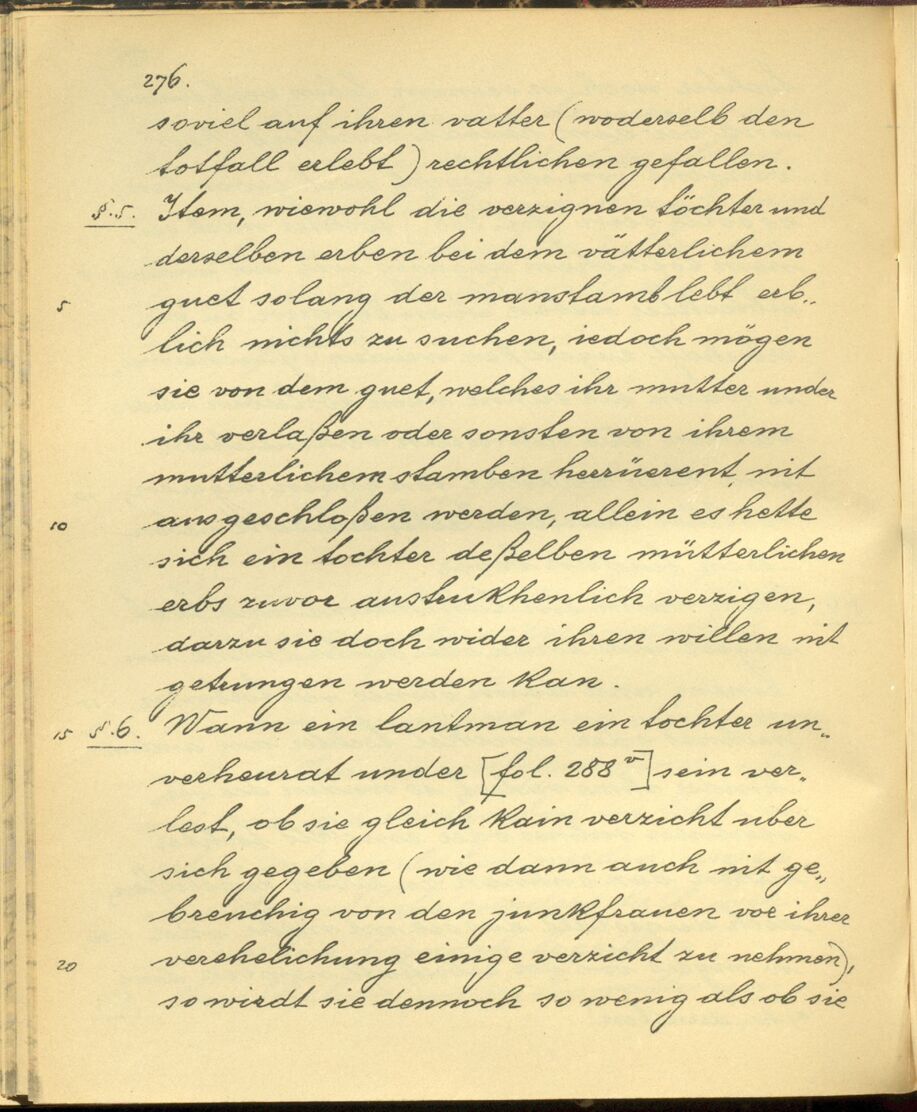 276.
soviel auf ihren vatter (woderselb den
totfall erlebt) rechtlichen gefallen.
§.5. Item, wiewohl die verzignen töchter und
derselben erben bei dem vätterlichem
5 guet solang der manstamb lebt erb„
lich nichts zu suchen, iedoch mögen
sie von dem guet, welches ihr mutter under
ihr verlaßen oder sonsten von ihrem
mutterlichem stamben herrüerent, nit
10 ausgeschloßen werden, allein es hette
sich ein tochter deßelben mütterlichen
erbs zuvor austrukhenlich verzigen,
darzu sie doch wider ihren willen nit
getrungen werden kan.
15 §.6. Wann ein lantman ein tochter un„
verheurat under [fol. 288 v] sein ver„
lest, ob sie gleich kain verzicht uber
sich gegeben (wie dann auch nit ge„
breuchig von den junkfrauen vor ihrer
20 verehelichung einige verzicht zu nehmen),
so wirdt sie dennoch so wenig als ob sie